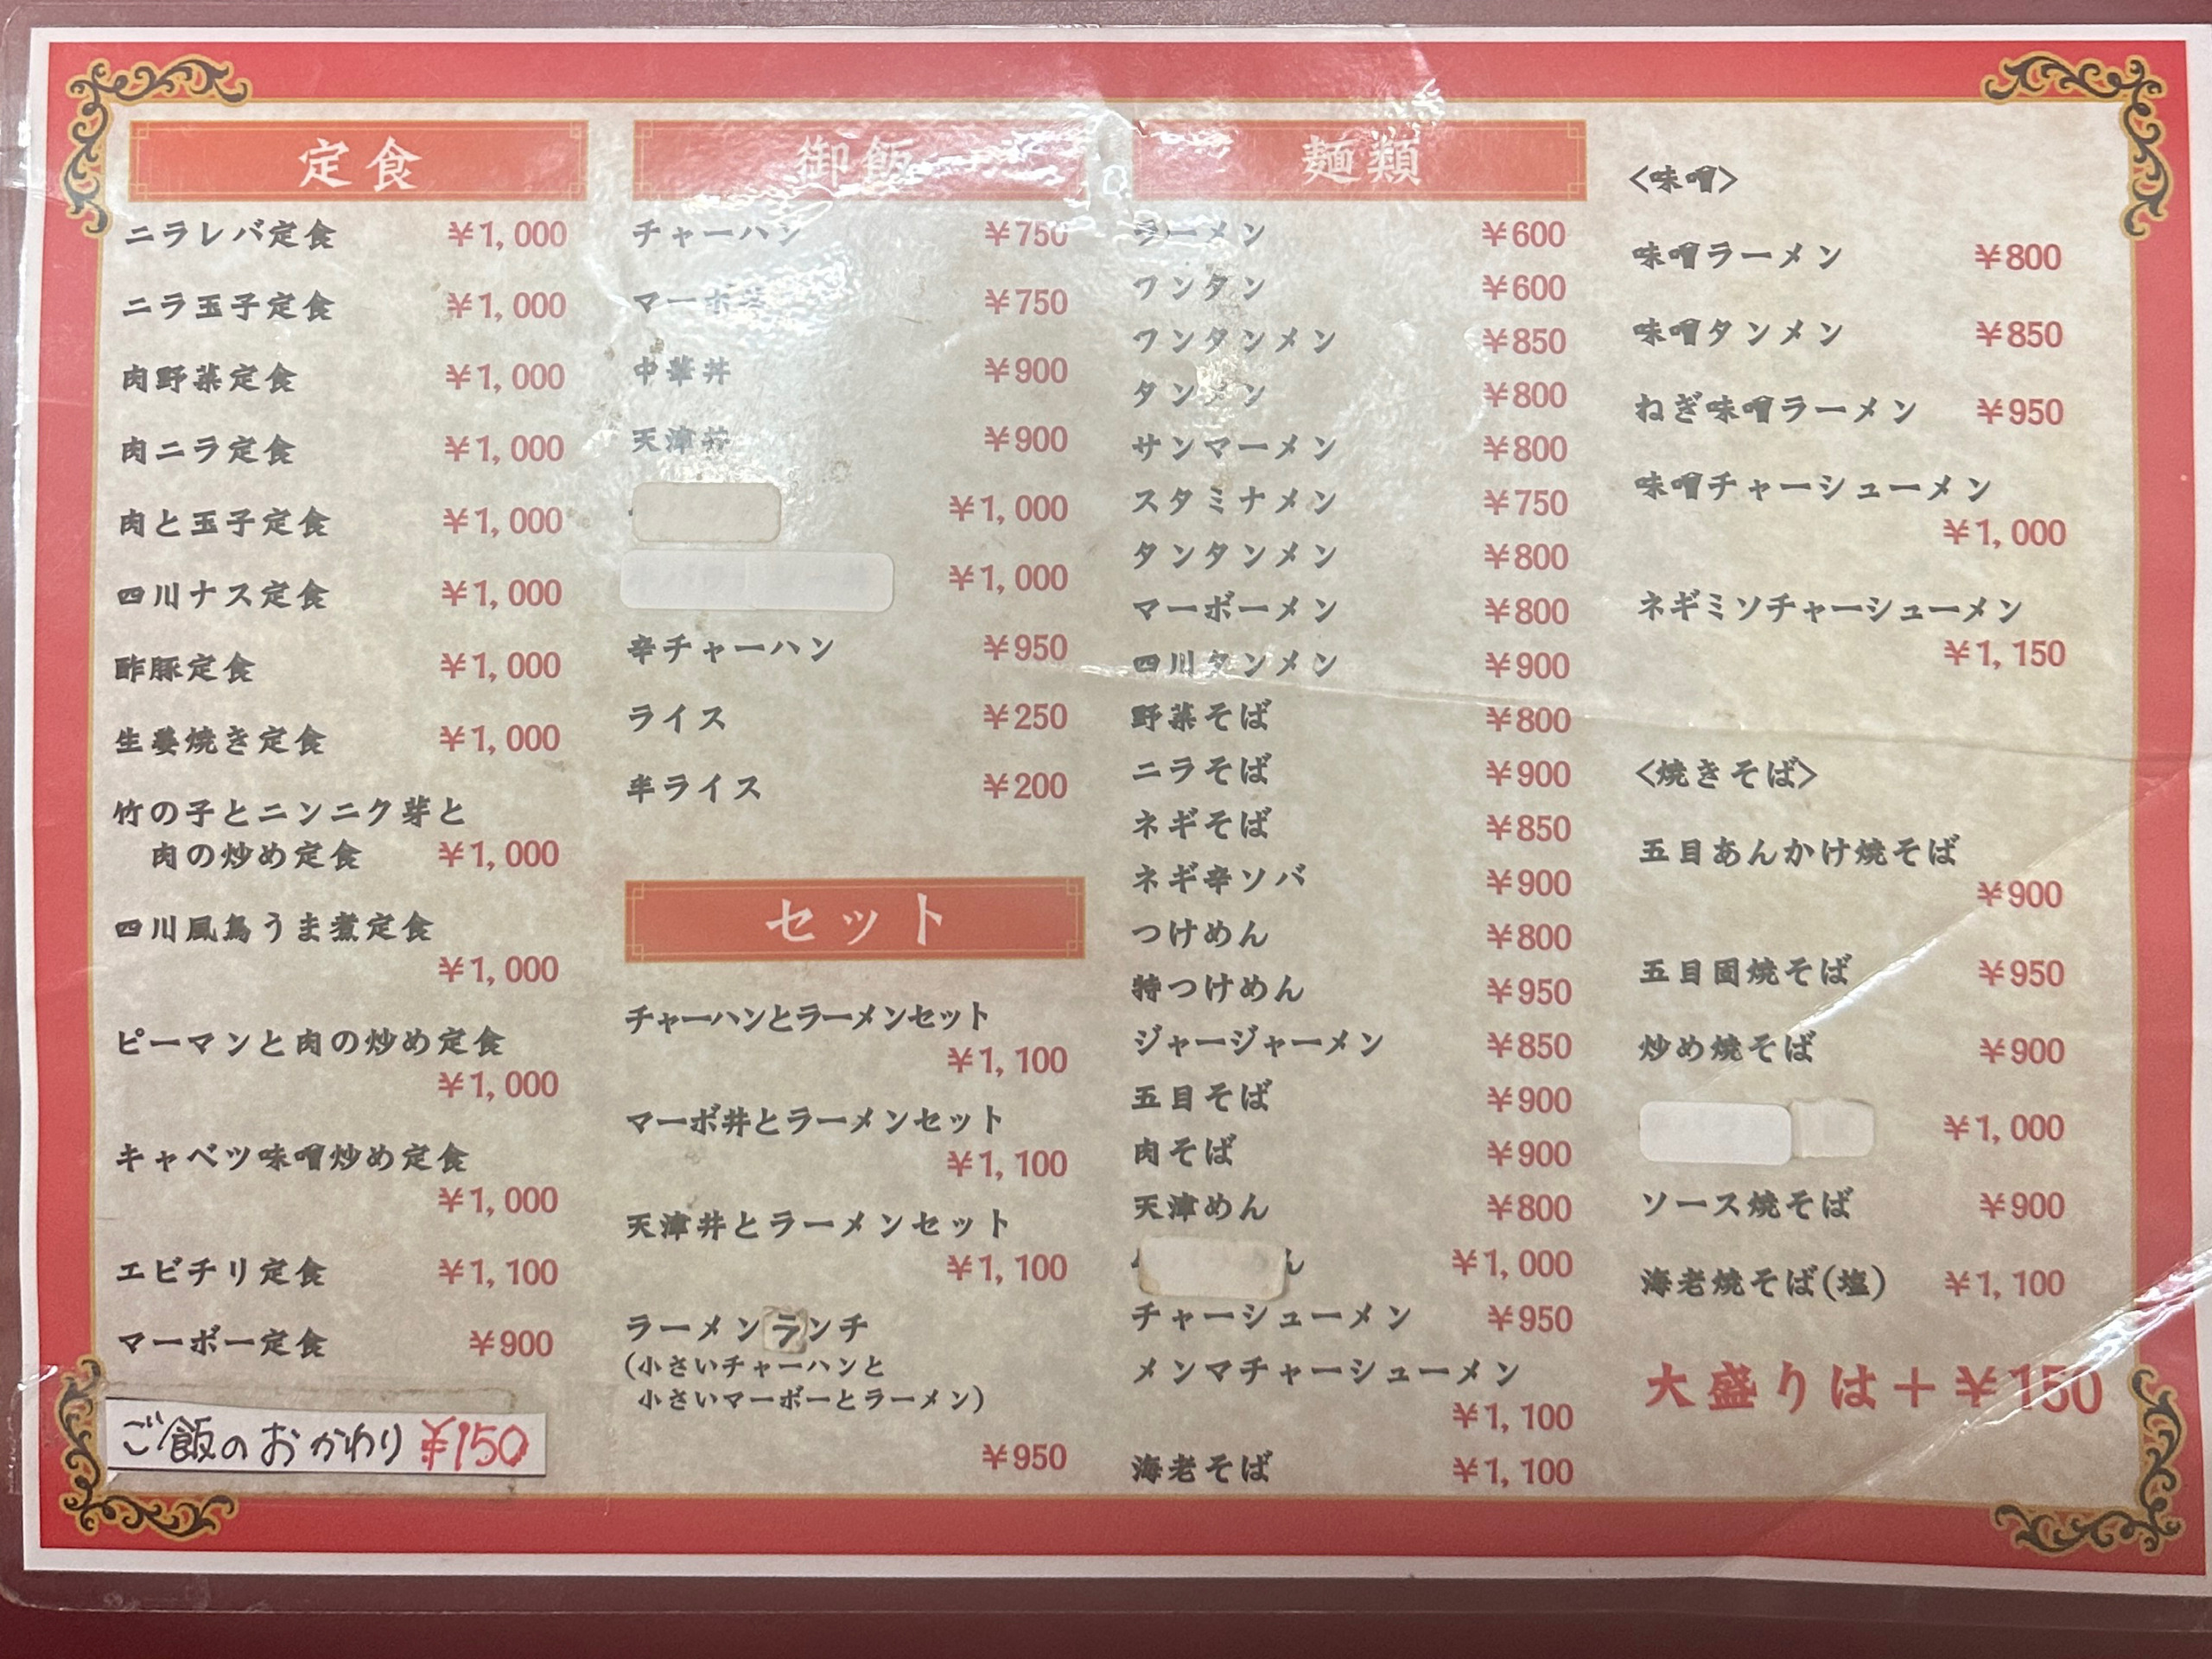 定食
ニラレバ定食 ￥1,000
ニラ玉子定食 ￥1,000
肉野菜定食 ￥1,000
肉ニラ定食 ￥1,000
肉と玉子定食 ￥1,000
四川ナス定食 ￥1,000
酢豚定食 ￥1,000
生姜焼き定食 ￥1,000
竹の子とニンニク芽と
肉の炒め定食 ￥1,000
四川風鳥うま煮定食
￥1,000
ピーマンと肉の炒め定食
￥1,000
キャベツ味噌炒め定食
￥1,000
エビチリ定食 ￥1,100
マーボー定食 ￥900
ご飯のおかわり ¥150
御飯
チャーハン ￥750
マーボ丼 ￥750
中華丼 ￥900
天津丼 ￥900
￥1,000
￥1,000
辛チャーハン ￥950
ライス ￥250
半ライス ￥200
セット
チャーハンとラーメンセット
￥1,100
マーボ丼とラーメンセット
￥1,100
天津丼とラーメンセット
￥1,100
ラーメンランチ
(小さいチャーハンと
小さいマーボーとラーメン)
￥950
麺類
ラーメン ￥600
ワンタン ￥600
ワンタンメン ￥850
タンメン ￥800
サンマーメン ￥800
スタミナメン ￥750
タンタンメン ￥800
マーボーメン ￥800
四川タンメン ￥900
野菜そば ￥800
ニラそば ￥900
ネギそば ￥850
ネギ辛ソバ ￥900
つけめん ￥800
特つけめん ￥950
ジャージャーメン ￥850
五目そば ￥900
肉そば ￥900
天津めん ￥800
￥1,000
チャーシューメン ￥950
メンマチャーシューメン
￥1,100
海老そば ￥1,100
<味噌>
味噌ラーメン ￥800
味噌タンメン ￥850
ねぎ味噌ラーメン ￥950
味噌チャーシューメン
￥1,000
ネギミソチャーシューメン
￥1,150
<焼きそば>
五目あんかけ焼そば
￥900
五目固焼そば ￥950
炒め焼そば ￥900
￥1,000
ソース焼そば ￥900
海老焼そば(塩) ￥1,100
大盛りは＋￥150